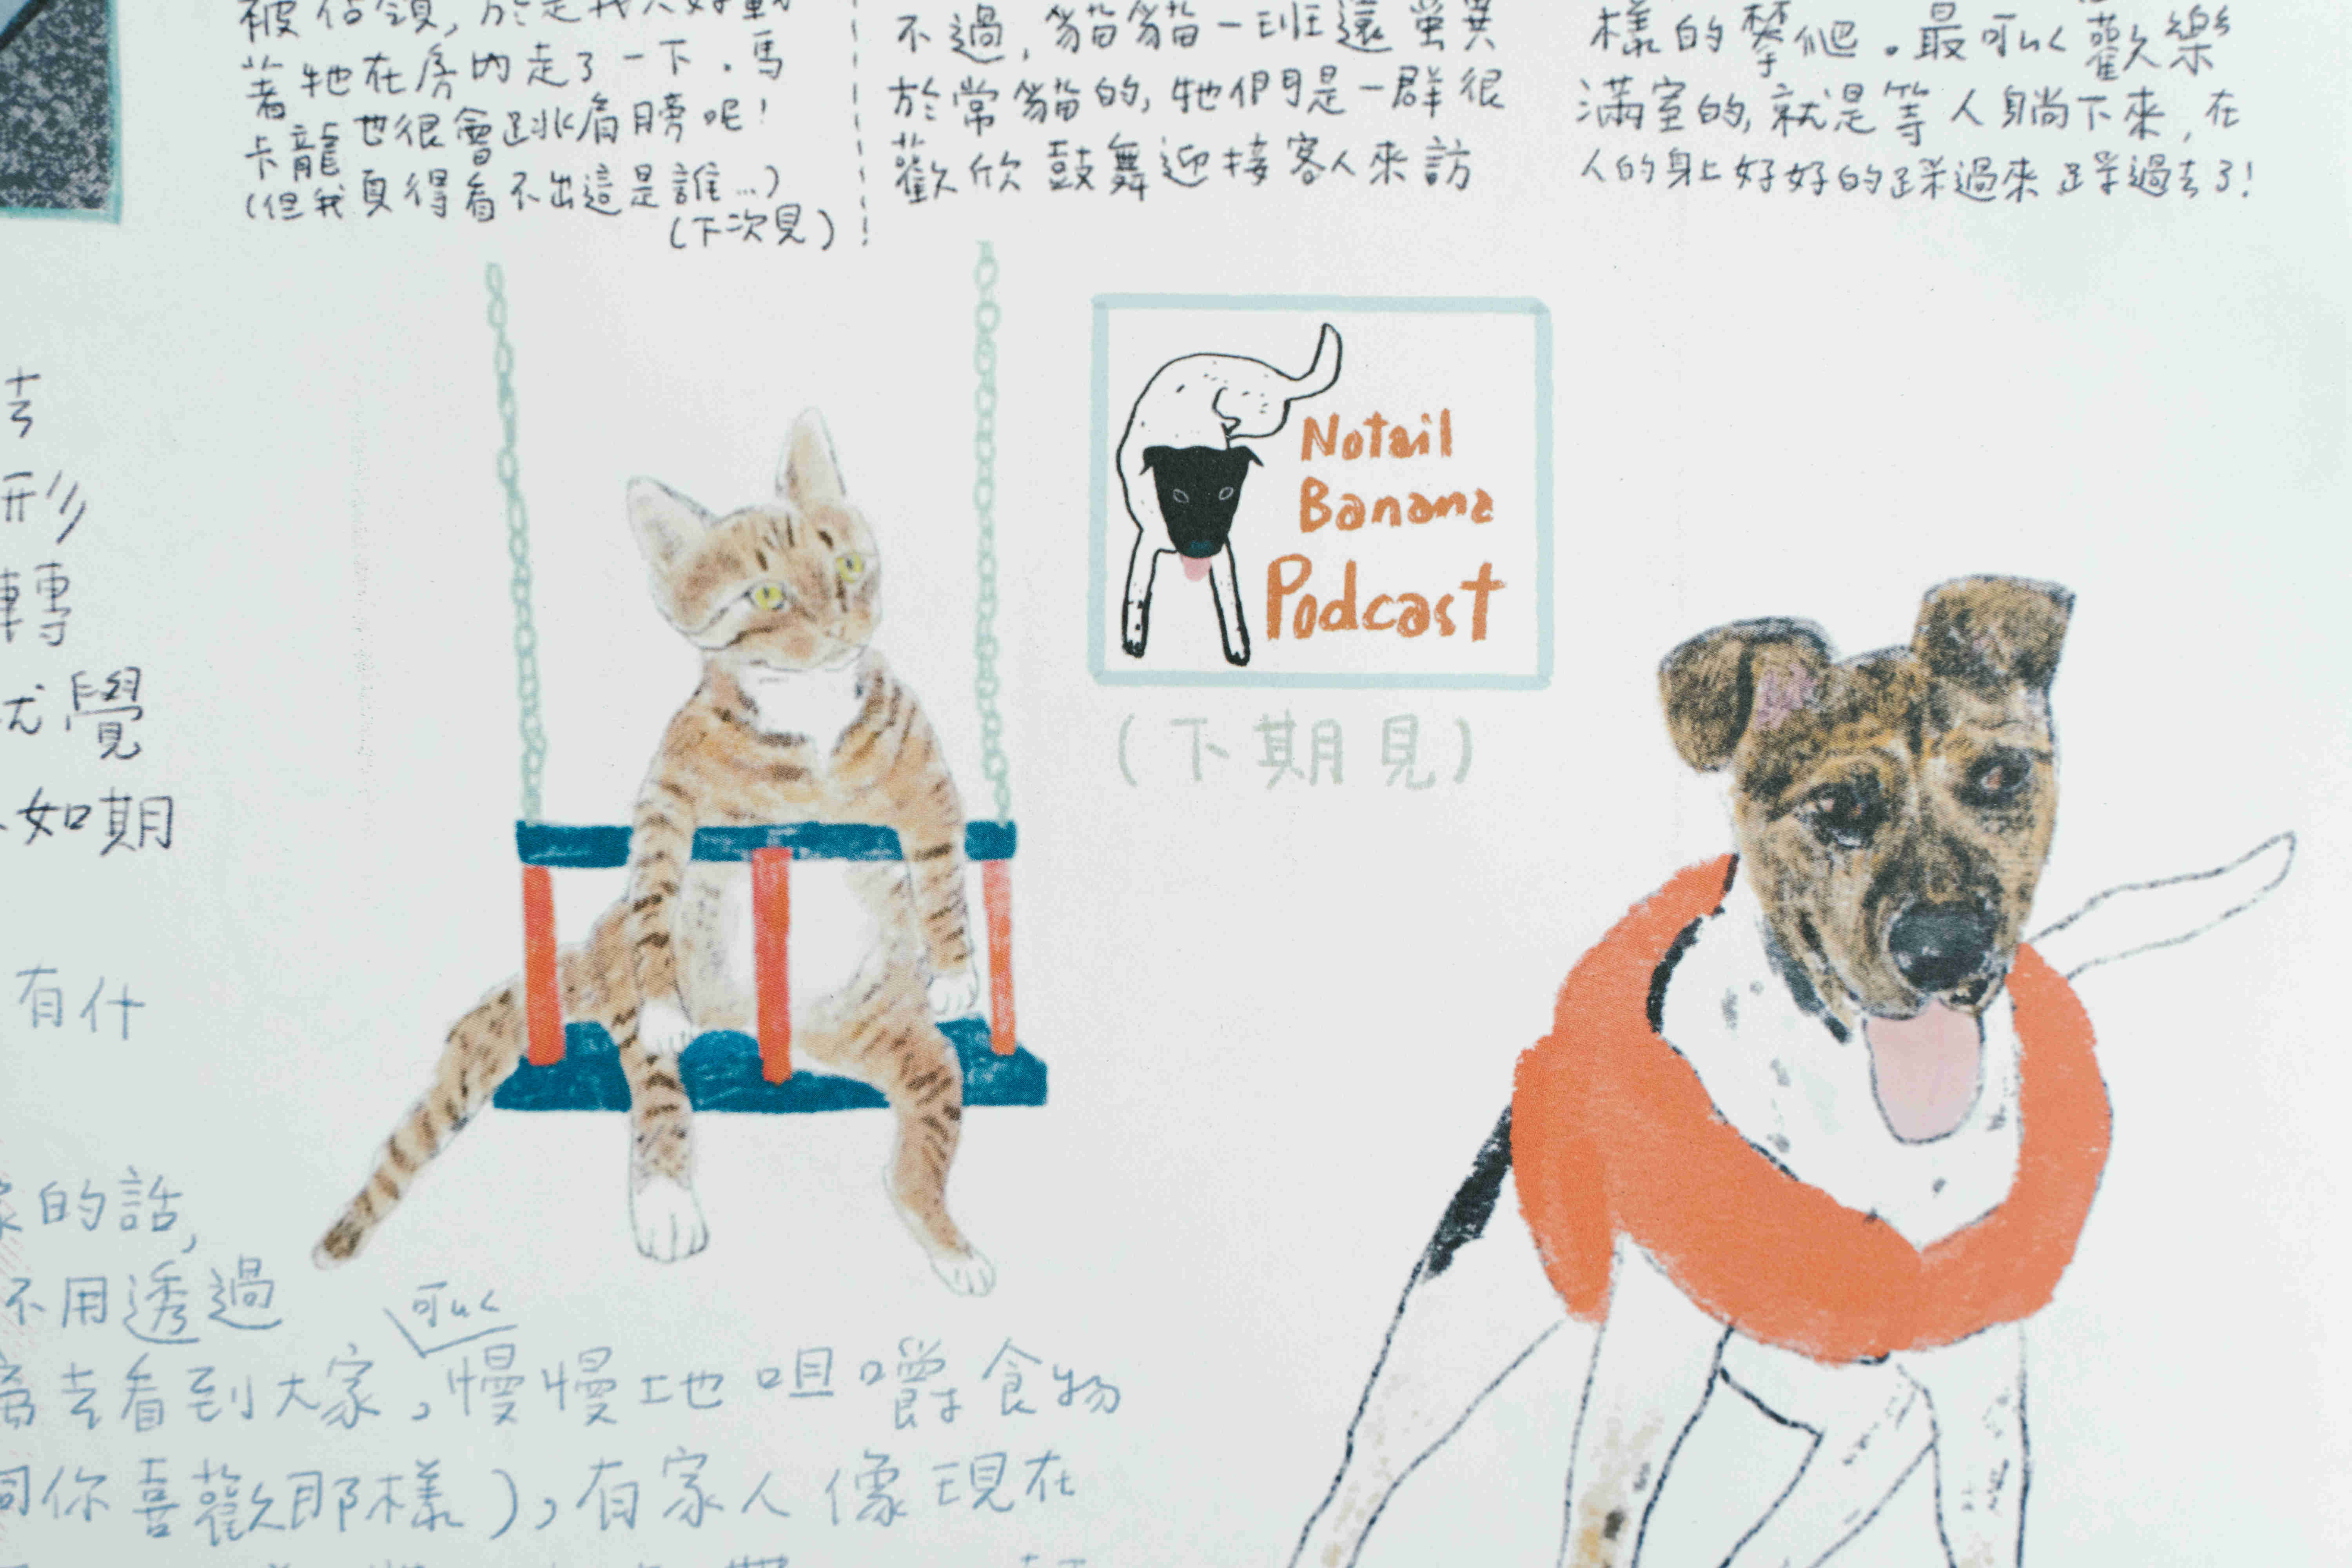 被佔領,於是我只好動
著牠在房內走了一下。馬
卡龍也很會跳肩膀呢!
(但我真得看不出這是誰...)
(下次見)
不過,貓貓一班還蠻異
於常貓的,牠們是一群很
歡欣鼓舞迎接客人來訪
樣的攀爬。最可以歡樂
滿室的,就是等人躺下來,在
人的身上好好的踩過來踩過去了!
Notail
Banana
Podcast
(下期見)
去
形
轉
就覺
如期
有什
的話,
不用透過
可以
去看到大家,慢慢地咀嚼食物
同你喜歡那樣),有家人像現在